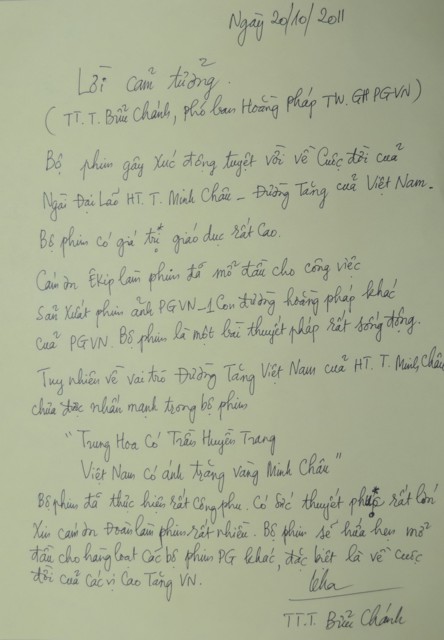 Ngày 20/10/2011
Lời cảm tưởng.
(TT.T. Bửu Chánh, phó ban Hoằng pháp TW. GHPGVN)
Bộ phim gây xúc động tuyệt vời về Cuộc đời của
Ngài Đại Lão HT. T. Minh Châu – Đường Tăng của Việt Nam.
Bộ phim có giá trị giáo dục rất cao.
Cám ơn Êkip làm phim đã mở đầu cho công việc
Sản Xuất phim ảnh PGVN – 1 Con đường hoằng pháp khác
của PGVN. Bộ phim là một bài thuyết pháp rất sống động.
Tuy nhiên về vai trò Đường Tăng Việt Nam của HT. T. Minh Châu
chưa được nhấn mạnh trong bộ phim
"Trung Hoa Có Trần Huyền Trang
Việt Nam có ánh trăng vàng Minh Châu"
Bộ phim đã thực hiện rất Công phu. Có Sức thuyết phục rất lớn
Xin cám ơn Đoàn làm phim rất nhiều. Bộ phim sẽ hứa hẹn mở
đầu cho hàng loạt Các bộ phim PG khác, đặc biệt là về cuộc
đời của Các vị Cao Tăng VN.
TT.T Bửu Chánh